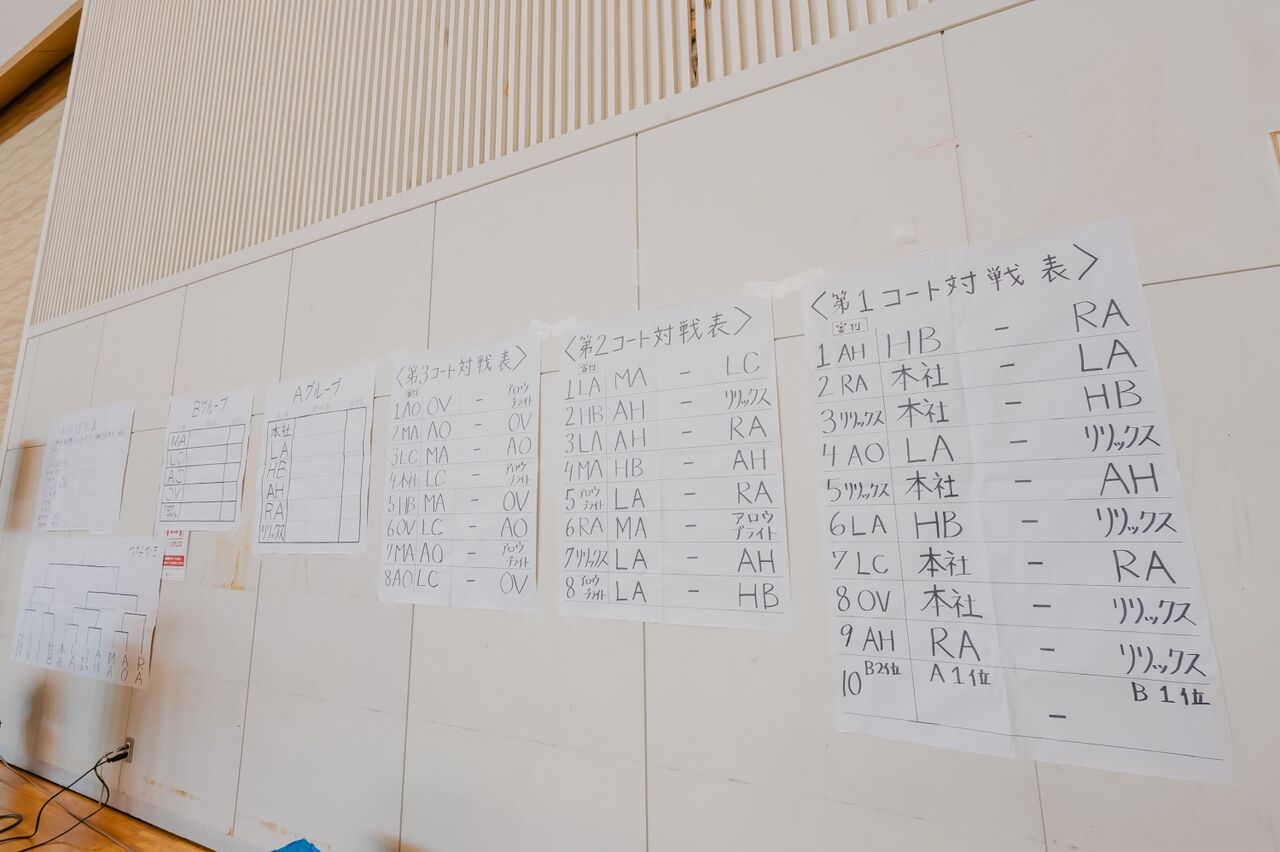 <第1コート対戦表>
審判
1 AH HB - RA
2 RA 本社 - LA
3 リリックス 本社 - HB
4 AO LA - リリックス
5 リリックス 本社 - AH
6 LA HB - リリックス
7 LC 本社 - RA
8 OV 本社 - リリックス
9 AH RA - リリックス
10 B2位 A1位 - B1位
<第2コート対戦表>
審判
1 LA MA - LC
2 HB AH - リリックス
3 LA AH - RA
4 MA HB - AH
5 アロウブライト LA - RA
6 RA MA - アロウブライト
7 リリックス LA - AH
8 アロウブライト LA - HB
<第3コート対戦表>
審判
1 AO OV - アロウブライト
2 MA AO - OV
3 LC MA - AO
4 本社 LC - アロウブライト
5 HB MA - OV
6 OV LC - AO
7 MA AO - アロウブライト
8 AO LC - OV
Aグループ
本社
LA
HB
AH
RA
リリックス
Bグループ
MA
LC
AO
OV
つなひき
HB
本社
LA
AH
MA
AO
RA